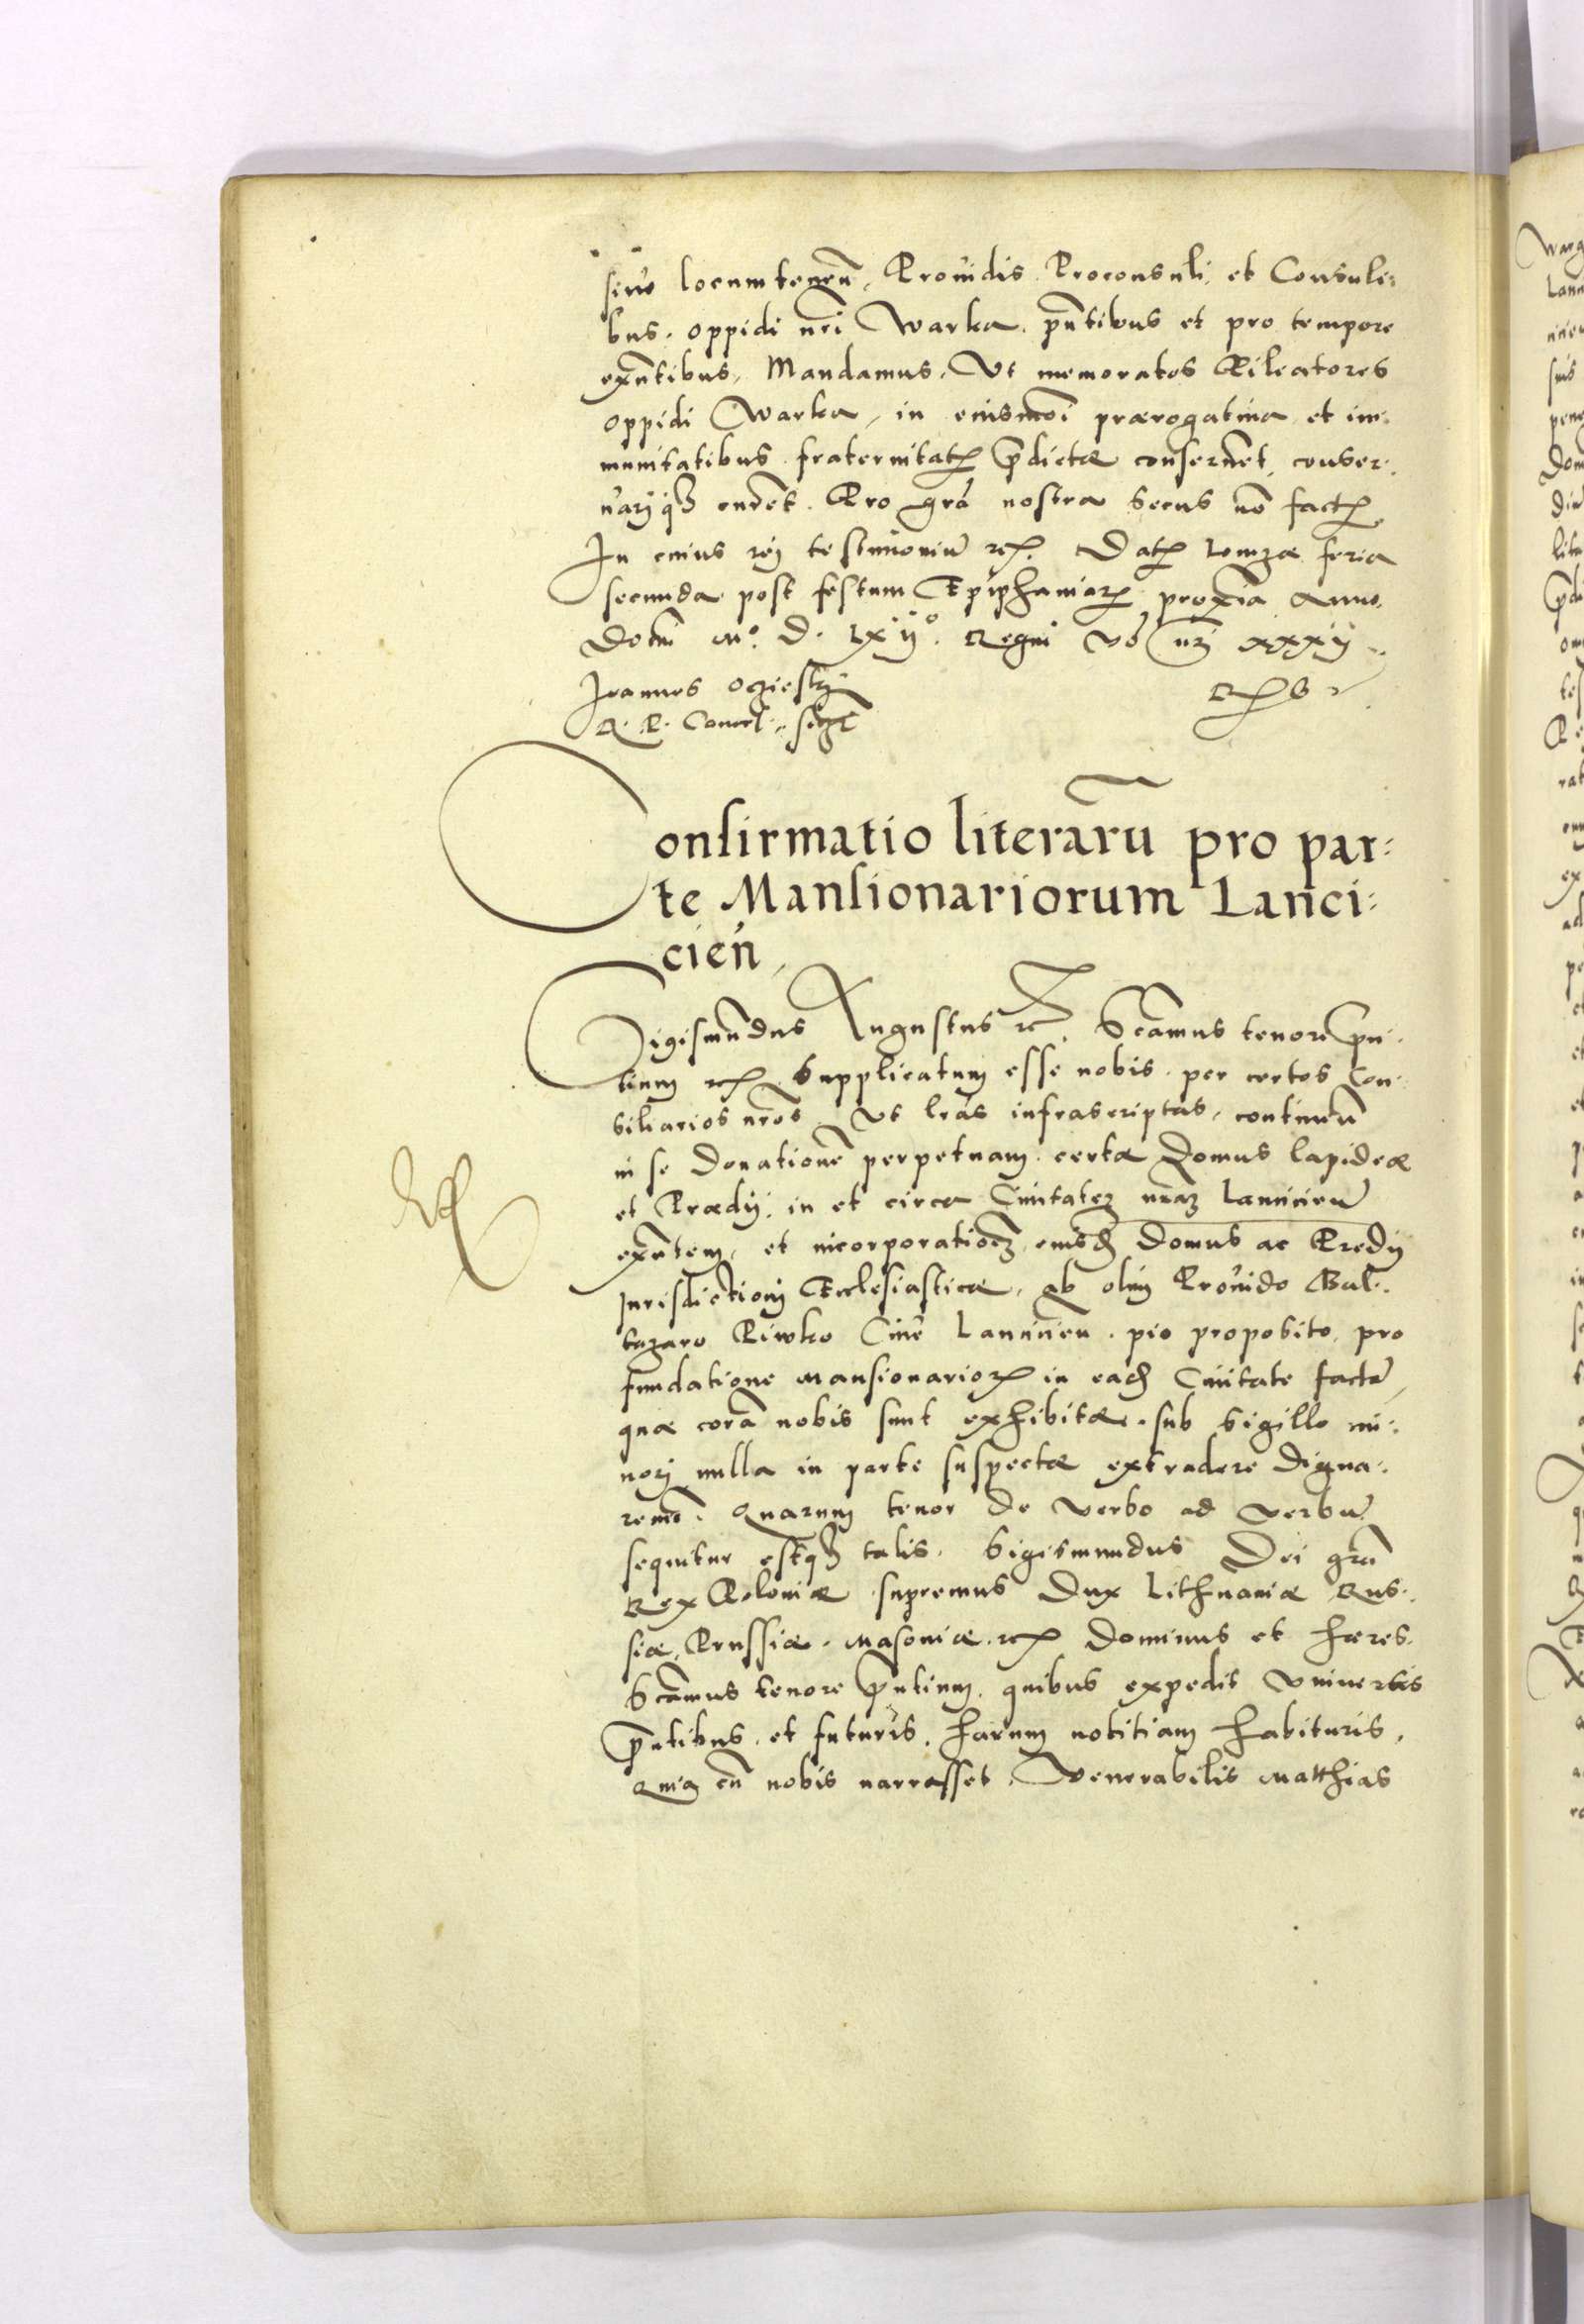 siue locumteneñ, Prouidis Proconsuli, et Consuli:
bus. oppidi nri Warka. pn̄tibus et pro tempore
exn̄tibus, Mandamus, Vt memoratos Pileatores
oppidi Warka, in eiusmoi prærogatiua et im:
munitatibus fraternitatꝭ p̄dictæ conseruet, conser:
uariqꝫ curet. Pro grá nostra secus nō factꝭ
In cuius rei testimoniū rcꝭ. Datꝭ Lomzæ feria
secunda post festum Epiphaniarꝭ proxīa Anno
Domi Mº. D. LXijº. Regni vó nri XXXIIJ
Joannes Oczieski
R. P. Cancel. sszt
Confirmatio literarū pro par:
te Mansionariorum Lanci:
cień,
Sigismūdus Augustus rc. Scamus tenore pn̄:
tium rcꝭ. Supplicatum esse nobis per certos Con:
siliarios nros Vt lrás infrascriptas, continen̄
in se Donationē perpetuam certæ Domus lapideæ
et Prædij, in et circa Ciuitatez nrāz Lancicień
exn̄tem, et incorporationēz eiusd Domus ac Predij
Jurisdictioni Ecclesiasticæ, ab olim Prouido Bal:
tazaro Piwko Ciue Lancicień. pio proposito, pro
fundatione Mansionarioꝝ in ead Ciuitate factā,
quæ corā nobis sunt exhibitæ. sub Sigillo mi:
nori nulla in parte suspectæ extradere digna:
remr. Quarum tenor de verbo ad verbū
sequitur estqꝫ talis. Sigismundus Dei grā
Rex Poloniæ supremus Dux Lithuaniæ Rus:
siæ, Prussiæ. Masoniæ. rcꝭ Dominus et Hæres.
Scamus tenore pn̄tium, quibus expedit Vniuersis
pn̄tibus et futuris, harum notitiam habituris,
Quia cū nobis narrasset Venerabilis Matthias